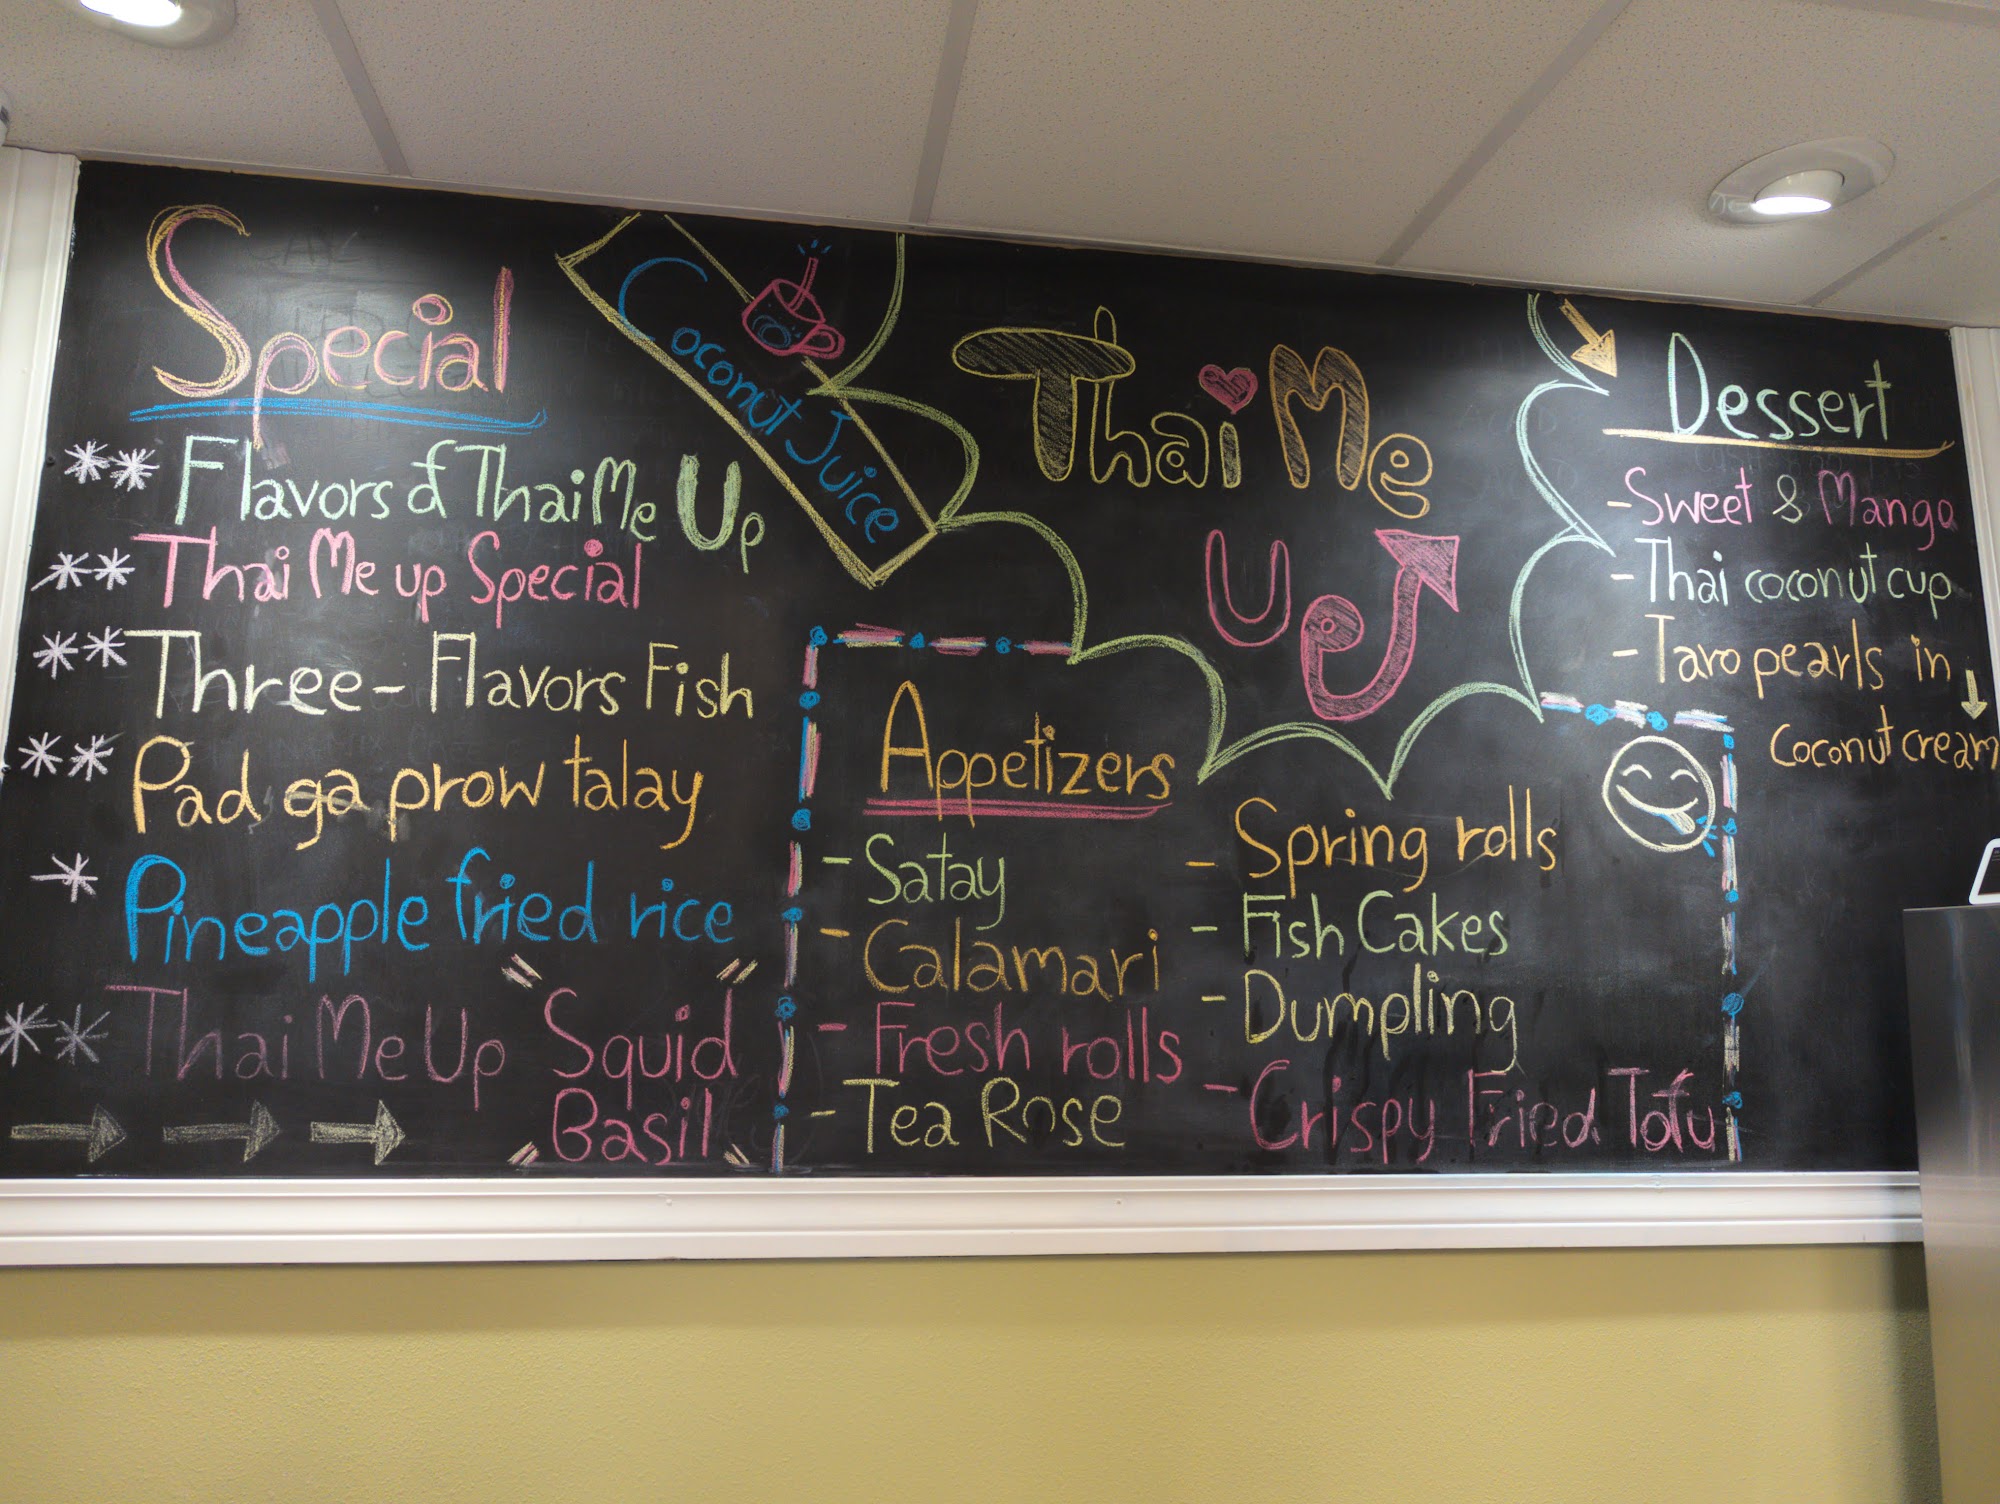 Special
** Flavors of Thai Me Up
** Thai Me up Special
** Three-Flavors Fish
** Pad ga prow talay
* Pineapple fried rice
** Thai Me Up Squid
Basil
Coconut Juice
Thai Me
Up
Appetizers
- Satay
- Calamari
- Fresh rolls
- Tea Rose
- Spring rolls
- Fish Cakes
- Dumpling
- Crispy Fried Tofu
Dessert
- Sweet & Mango
- Thai coconut cup
- Taro pearls in
Coconut cream